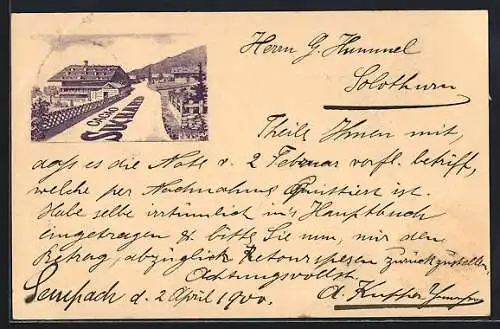 CACAO
SUCHARD
Herrn G. Hummel
Solothurn
Theile Ihnen mit,
dass es die Nota v. 2 Februar verfl. betrifft,
welche per Nachnahme Quittiert ist.
Habe selbe irrtümlich in's Hauptbuch
eingetragen & bitte Sie nun, mir den
Betrag, abzüglich Retourspesen zurückzustellen.
Achtungsvollst
Sempach d. 2 April 1900.
A. Kupper